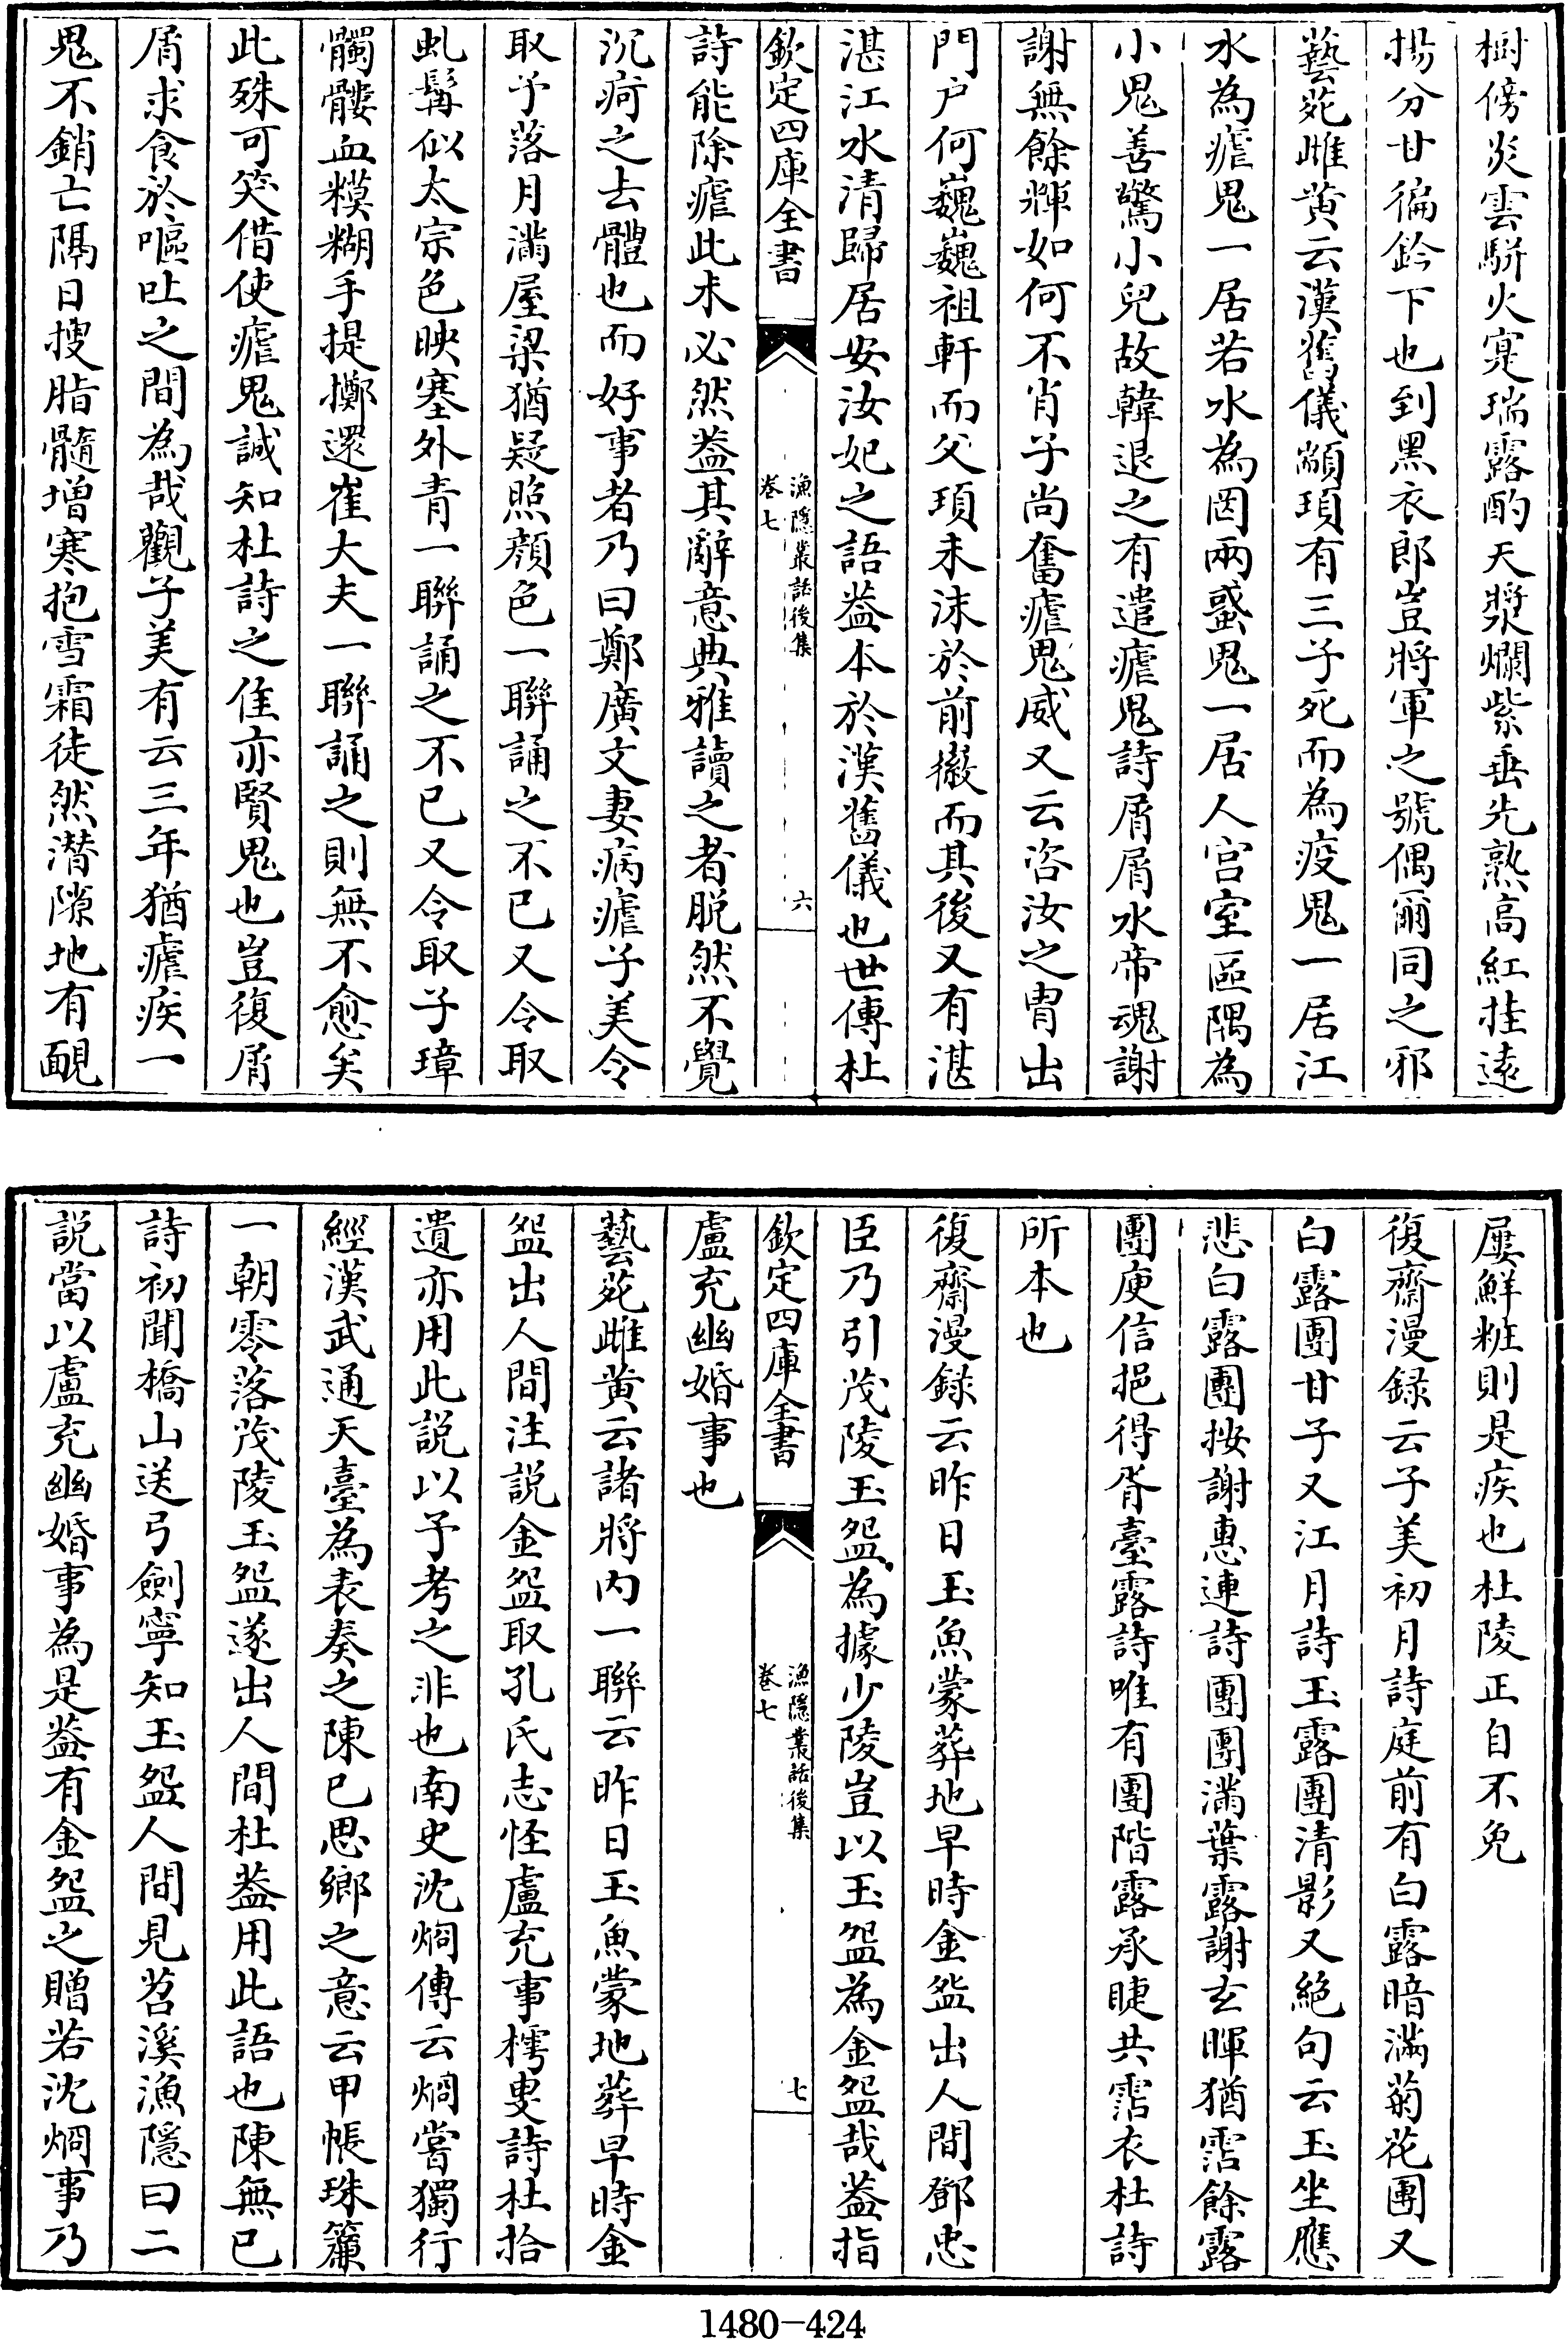 樹傍炎雲駢火寔瑞露酌天漿爛紫垂先熟高紅挂遠
揚分甘徧鈴下也到黑衣郎豈將軍之號偶爾同之邪
藝苑雌黄云漢舊儀顓頊有三子死而為疫鬼一居江
水為瘧鬼一居若水為罔兩蜮鬼一居人宫室區隅為
小鬼善驚小兒故韓退之有遣瘧鬼詩屑屑水帝魂謝
謝無餘輝如何不肖子尚奮瘧鬼威又云咨汝之胄出
門户何巍巍祖軒而父頊未沫於前徽而其後又有湛
湛江水清歸居安汝妃之語葢本於漢舊儀也世傳杜
欽定四庫全書
漁隱叢話後集
卷七
六
詩能除瘧此未必然葢其辭意典雅讀之者脱然不覺
沉疴之去體也而好事者乃曰鄭廣文妻病瘧子美令
取予落月滿屋梁猶疑照顔色一聯誦之不已又令取
虬髯似太宗色映塞外青一聯誦之不已又令取子璋
髑髏血糢糊手提擲還崔大夫一聯誦之則無不愈矣
此殊可笑借使瘧鬼誠知杜詩之佳亦賢鬼也豈復屑
屑求食於嘔吐之間為哉觀子美有云三年猶瘧疾一
鬼不銷亡隔日搜脂髓増寒抱雪霜徒然潛隙地有靦
屢鮮粧則是疾也杜陵正自不免
復齋漫録云子美初月詩庭前有白露暗滿菊花團又
白露團甘子又江月詩玉露團清影又絶句云玉坐應
悲白露團按謝惠連詩團團滿葉露謝玄暉猶霑餘露
團庾信挹得胥臺露詩唯有團階露承睫共霑衣杜詩
所本也
復齋漫録云昨日玉魚蒙葬地早時金盌出人間鄧忠
臣乃引茂陵玉盌為據少陵豈以玉盌為金盌哉葢指
欽定四庫全書
漁隱叢話後集
卷七
七
盧充幽婚事也
藝苑雌黄云諸將内一聯云昨日玉魚蒙地葬早時金
盌出人間注説金盌取孔氏志怪盧充事樗叟詩杜拾
遺亦用此説以予考之非也南史沈烱傳云烱嘗獨行
經漢武通天臺為表奏之陳已思鄉之意云甲帳珠簾
一朝零落茂陵玉盌遂出人間杜葢用此語也陳無已
詩初聞橋山送弓劍寧知玉盌人間見苕溪漁隱曰二
説當以盧充幽婚事為是葢有金盌之贈若沈烱事乃
1480-424